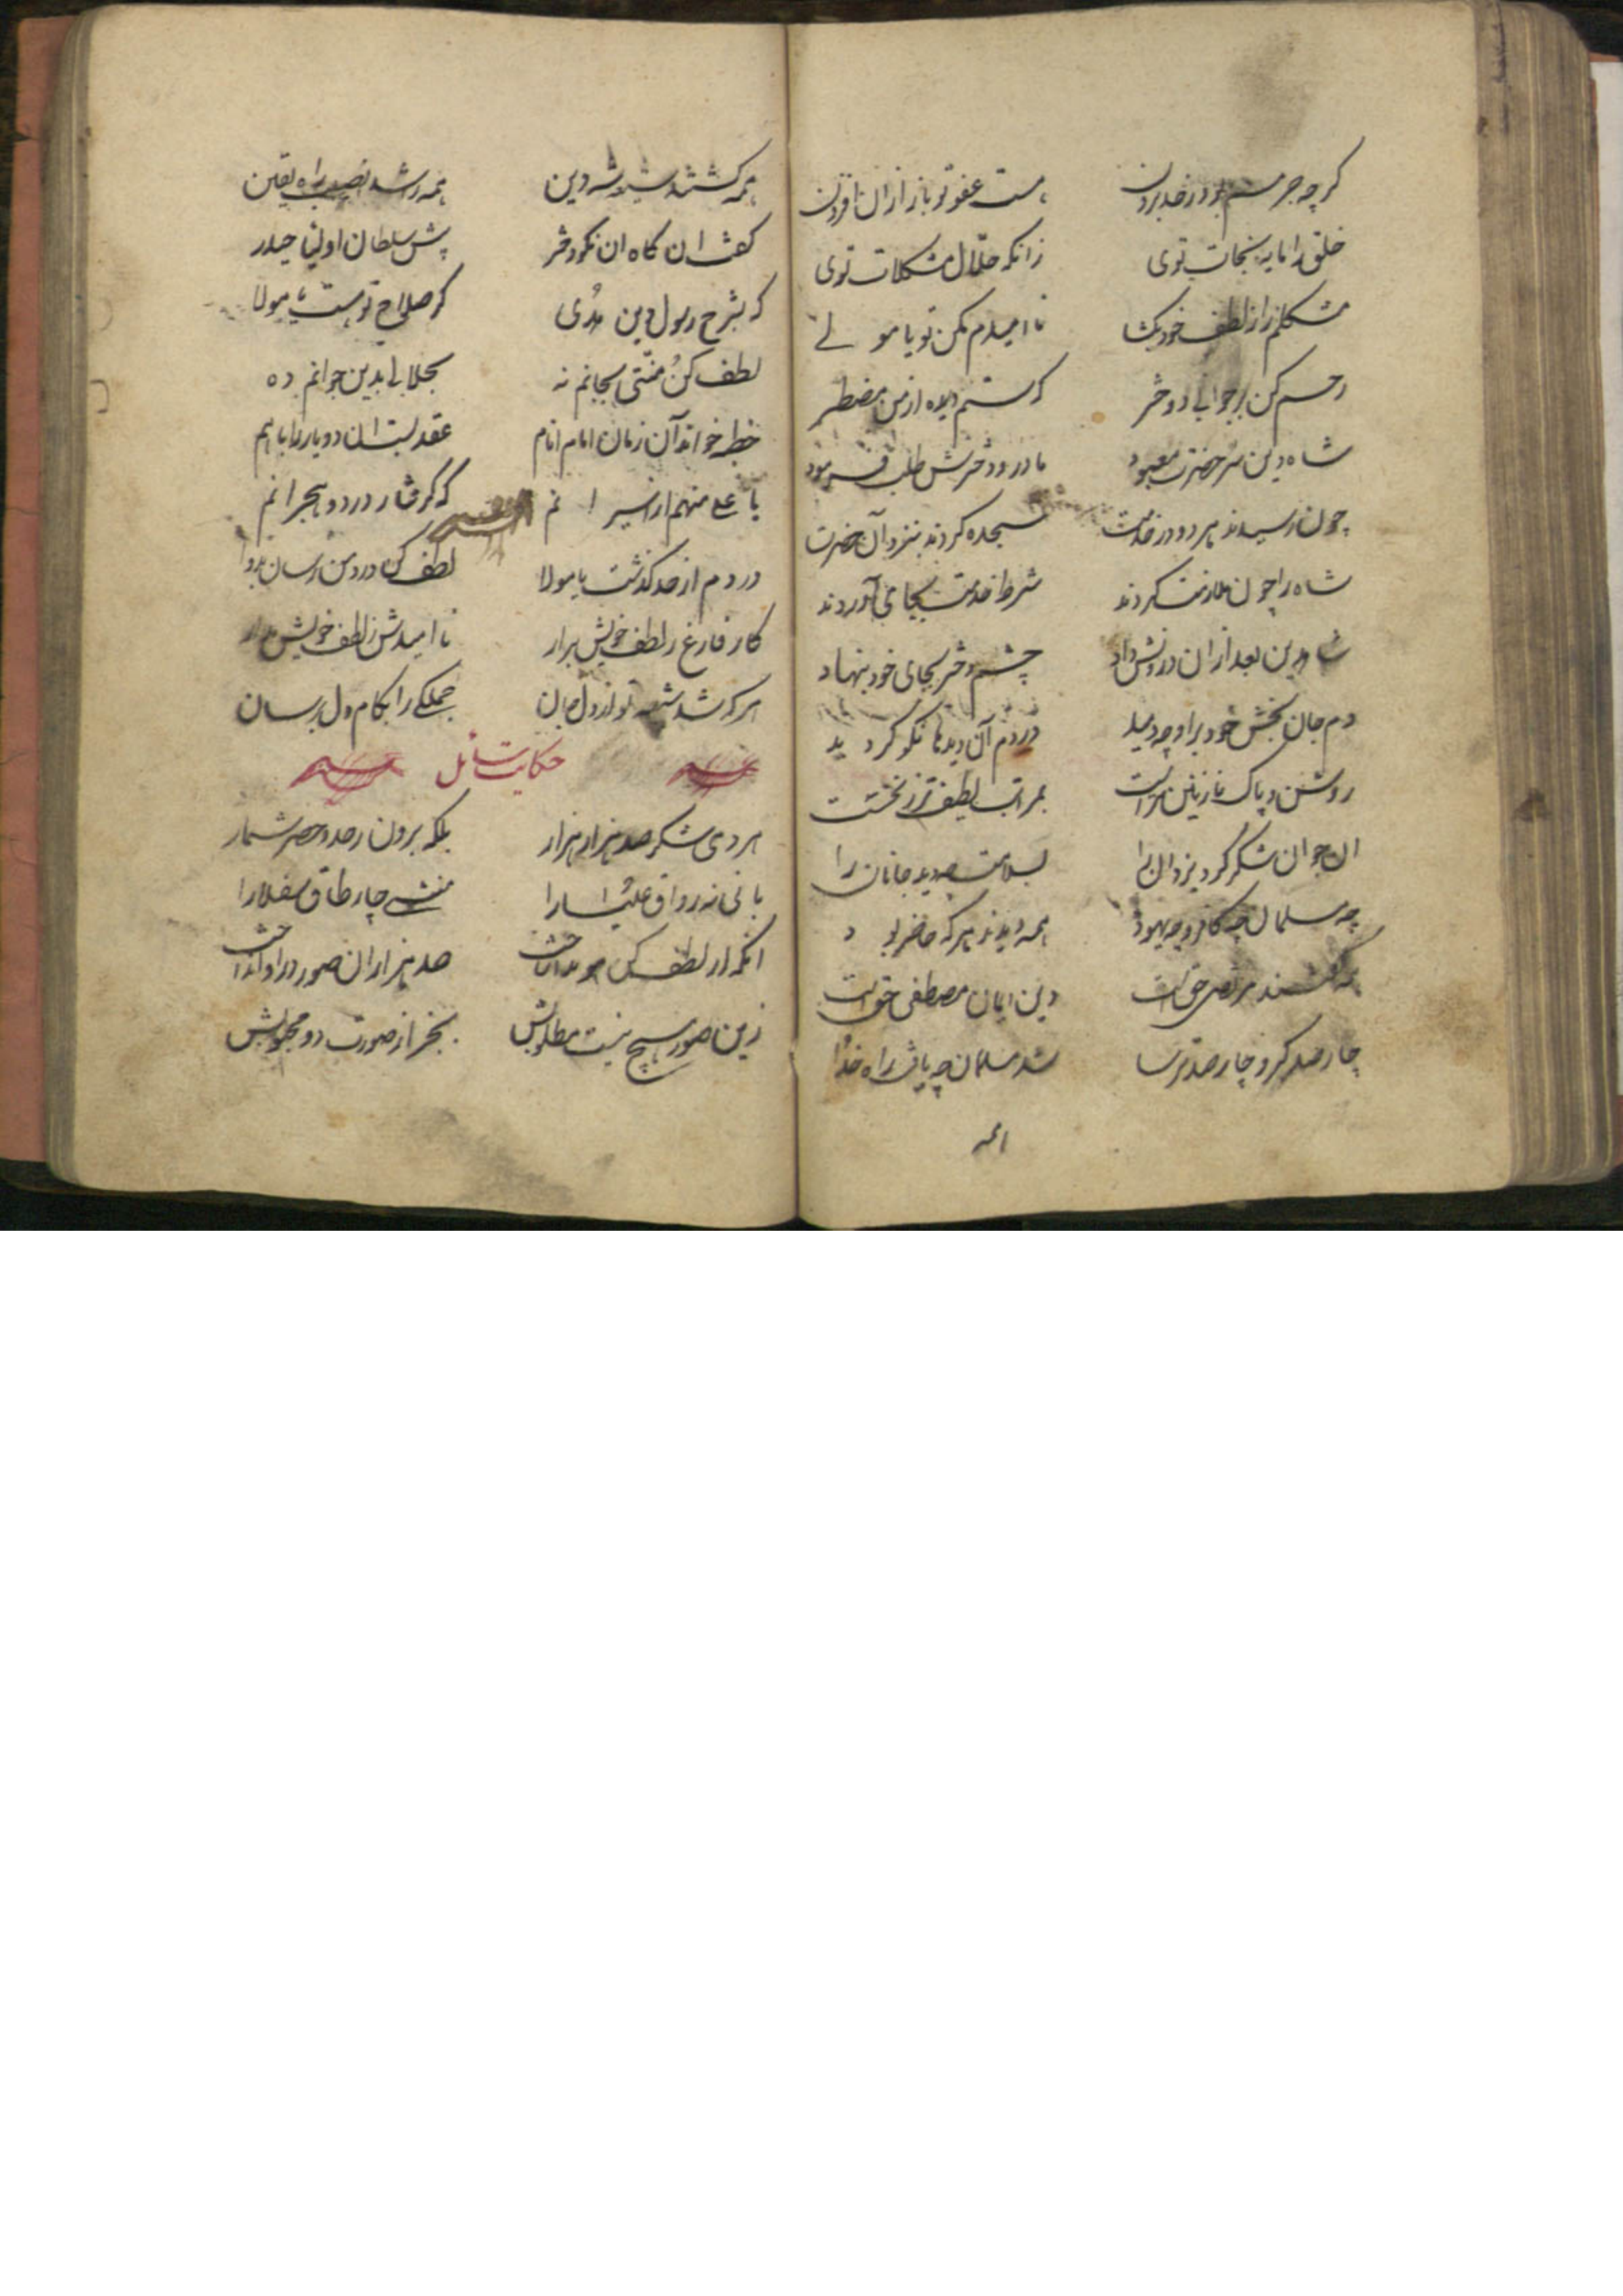 کرچه جرمم بود ز حد بیرون هست عفو تو باز ازان افزون
خلق را مایه نجات توی زانکه حلال مشکلات توی
مشکلم را ز لطف خود بکشا نا امیدم مکن تو یا مولی
رحم کن بر جوانی دختر که ستم دیده از من مضطر
شاه دین سر حضرت معبود مادر و دخترش طلب فرمود
چون رسیدند هر دو در خدمت سجده کردند نزد آن حضرت
شاه را چون ملازمت کردند شرط خدمت بجای آوردند
شاه دین بعد ازان درونش داد چشم دختر بجای خود بنهاد
دم جان بخش خود براو چه دمید در دم آن دیدها نکو کردید
روشن و پاک نازنین بمراتب لطیف تر ز نخست
ان جوان شکر کرد یزدان را بسلامت چه دید جانان را
چه مسلمان چه کافر و چه یهود همه دیدند هر که حاضر بود
همه گفتند مرتضی حق است دین ایمان مصطفی حق است
چارصد کبر و چارصد ترسا شد مسلمان چه یافت راه خدا
همه
همه کشتند شیعه شه دین همه را شد نصیب راه یقین
کفت ان کاه ان نکو دختر پیش سلطان اولیا حیدر
که بشرح رسول دین هدی کر صلاح تو هست یا مولا
لطف کن منتی بجانم نه بحلالی بدین جوانم ده
خطبه خواند آن زمان امام انام عقد بست ان دو یار را باهم
یا علی منهم از اسیرانم که کرفتار درد و هجرانم
دردم از حد کذشت یا مولا لطف کن درد من رسان بدوا
کار فارغ ز لطف خویش برار نا امیدش ز لطف خویش مدار
هرکه شد شیعه تو از دل جان جملکی را بکام دل برسان
حکایت سائل
هر دمی شکر صد هزار هزار بلکه برون ز حد و حصر شمار
بانی نه رواق علیا را منشی چار طاق سفلا را
انکه از لطف کن صد هزاران صور درو انداخت
زین صور هیچ نیست مطلوبش بخر از صورت دو محبوبش